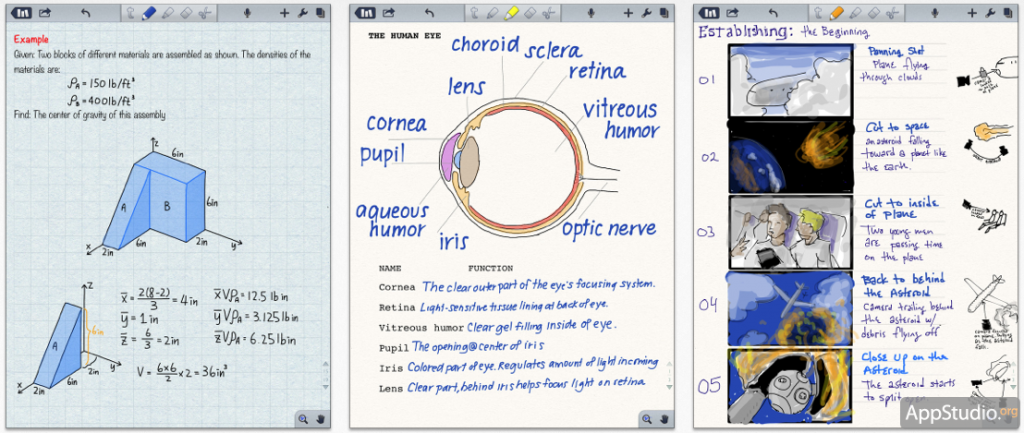 Example
Given: Two blocks of different materials are assembled as shown. The densities of the
materials are:
ρA = 150 lb/ft³
ρB = 400 lb/ft³
Find: The center of gravity of this assembly
z
6in
A
B
6in
x
2in
6in
2in
y
z
6in
A
2in
x
2in
6in
y
x̄ = 2(8-2)/3 = 4in
ȳ = 1in
z̄ = 6/3 = 2in
V = 6x6/2 x2 = 36in³
x̄VρA = 12.5 lb in
ȳVρA = 3.125 lb in
z̄VρA = 6.25 lb in
THE HUMAN EYE
choroid
sclera
retina
lens
vitreous
humor
cornea
pupil
aqueous
humor
iris
optic nerve
NAME FUNCTION
Cornea The clear outer part of the eye's focusing system.
Retina Light-sensitive tissue lining at back of eye.
Vitreous humor Clear gel filling inside of eye.
Pupil The opening @ center of iris
Iris Colored part of eye. Regulates amount of light incoming
Lens Clear part, behind iris helps focus light on retina
Establishing: the Beginning
01
Panning Shot
Plane flying
through clouds
02
Cut to space
an asteroid falling
toward a planet like
the earth.
03
Cut to inside
of plane
Two young men
are passing time
on the plane
04
Back to behind
the Asteroid
Camera trailing behind
the asteroid w/
debris flying off
05
Close up on the
Asteroid
The asteroid starts
to split
AppStudio.org